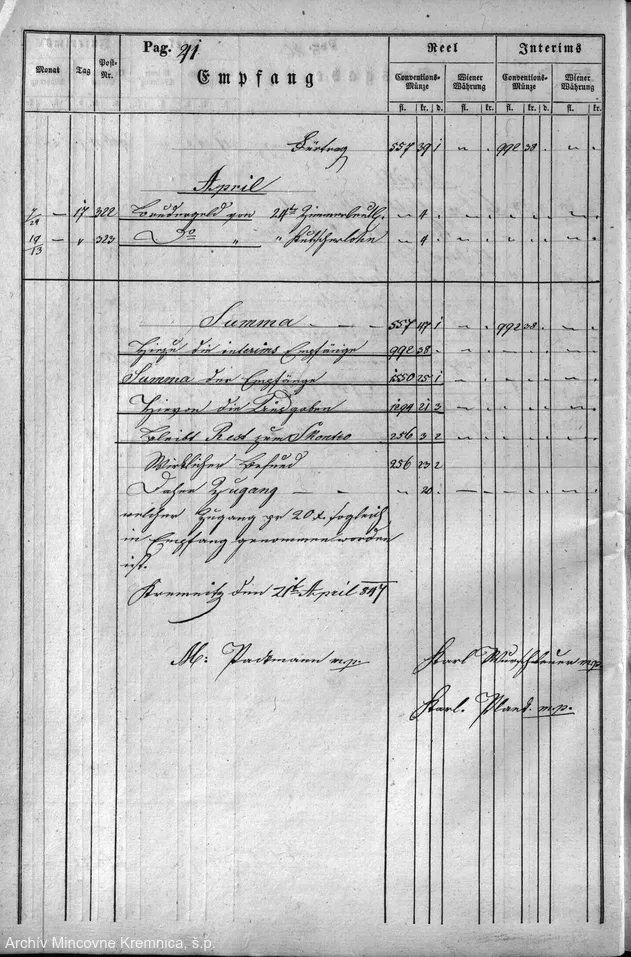 Pag. 41 Reel Interims
Monat Tag Post-Nr. Empfang Conventions-Münze Wiener Währung Conventions-Münze Wiener Währung
fl. kr. d. fl. kr. fl. kr. d. fl. kr.
Fürtrag 557 39 1 " " 992 38 . " "
April
7/29 — 17 322 Brudergeld von 24th " 4 . " " " " . " "
19/13 — " 323 Do " " " 4 . " " " " . " "
Summa 557 47 1 " " 992 38 . " "
Hiezu die interims Empfänge 992 38 .
Summa der Empfänge 1550 25 1
Hievon die Ausgaben 1294 21 3
Bleibt Rest zum Skontro 256 3 2
Wirklicher Befund 256 23 2
Daher Zugang " 20 .
welcher Zugang pr 20 x. sogleich
in Empfang genommen worden
ist.
Kremnitz den 21t April 847
M: Packmann m.p. Karl m.p.
Karl. m.p.
Archív Mincovne Kremnica, š.p.